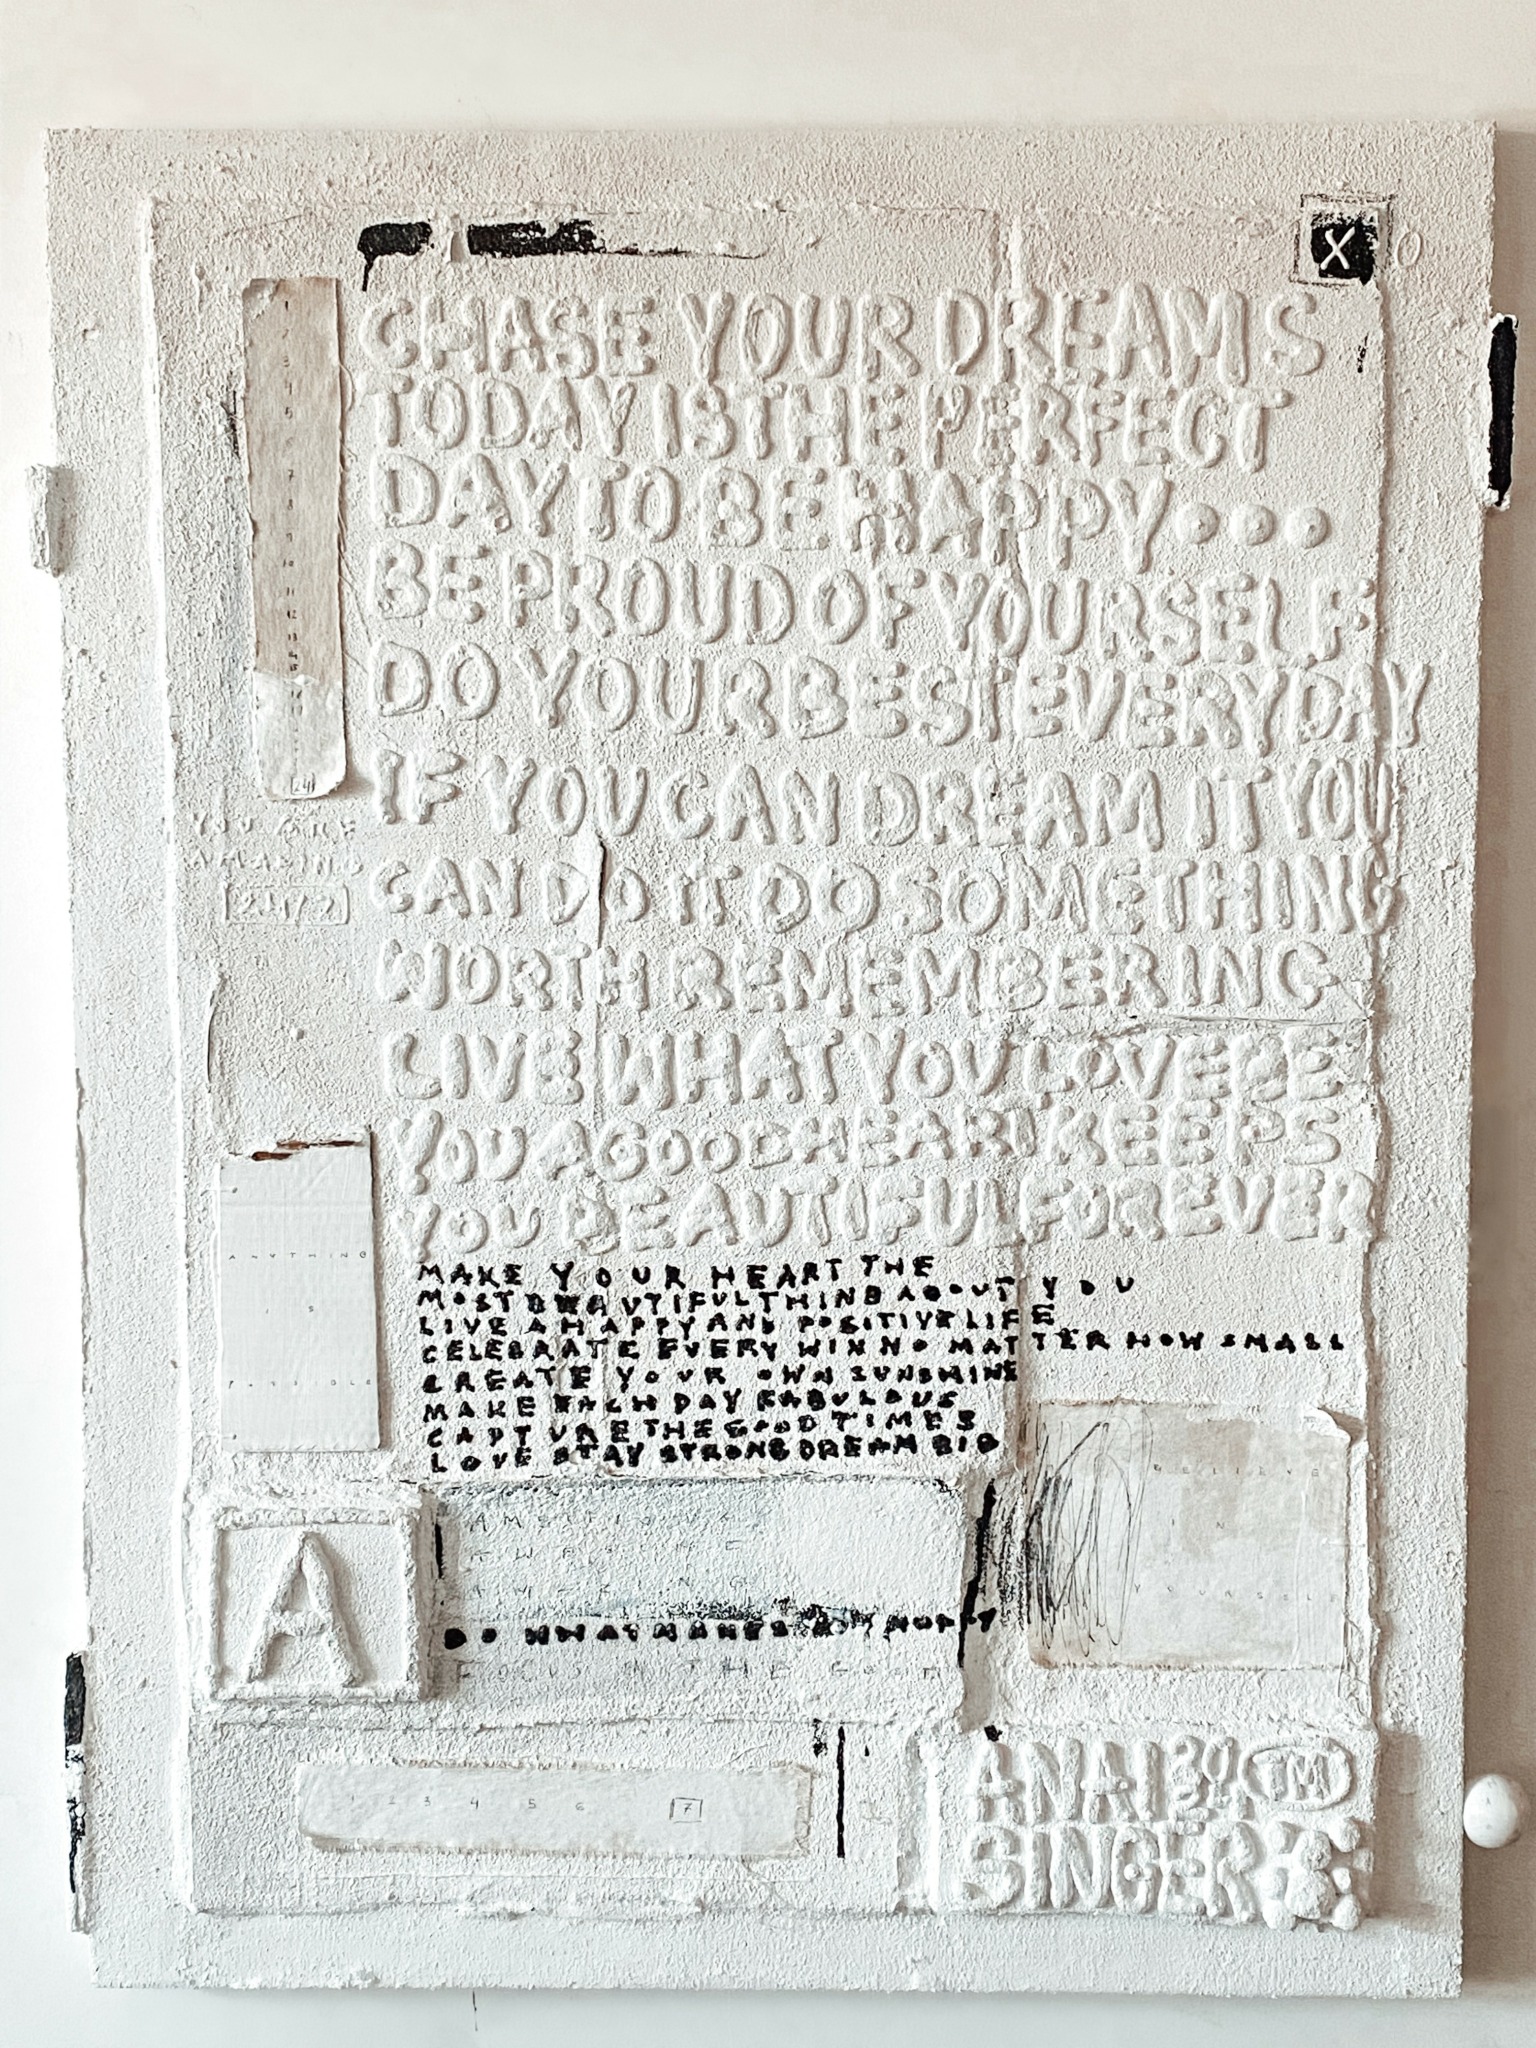 X O
1
2
3
4
5
7
8
9
10
11
12
13
14
15
24
CHASE YOUR DREAMS
TODAY IS THE PERFECT
DAY TO BE HAPPY...
BE PROUD OF YOURSELF
DO YOUR BEST EVERY DAY
IF YOU CAN DREAM IT YOU
CAN DO IT DO SOMETHING
WORTH REMEMBERING
LIVE WHAT YOU LOVE BE
YOU A GOOD HEART KEEPS
YOU BEAUTIFUL FOREVER
YOU ARE
AMAZING
24/7
ANYTHING
IS
POSSIBLE
MAKE YOUR HEART THE
MOST BEAUTIFUL THING ABOUT YOU
LIVE A HAPPY AND POSITIVE LIFE
CELEBRATE EVERY WIN NO MATTER HOW SMALL
CREATE YOUR OWN SUNSHINE
MAKE EACH DAY FABULOUS
CAPTURE THE GOOD TIMES
LOVE STAY STRONG DREAM BIG
BELIEVE
IN
YOURSELF
A
DO WHAT MAKES HAPPY
FOCUS THE GOOD
1 2 3 4 5 6 7
TM
SINGER